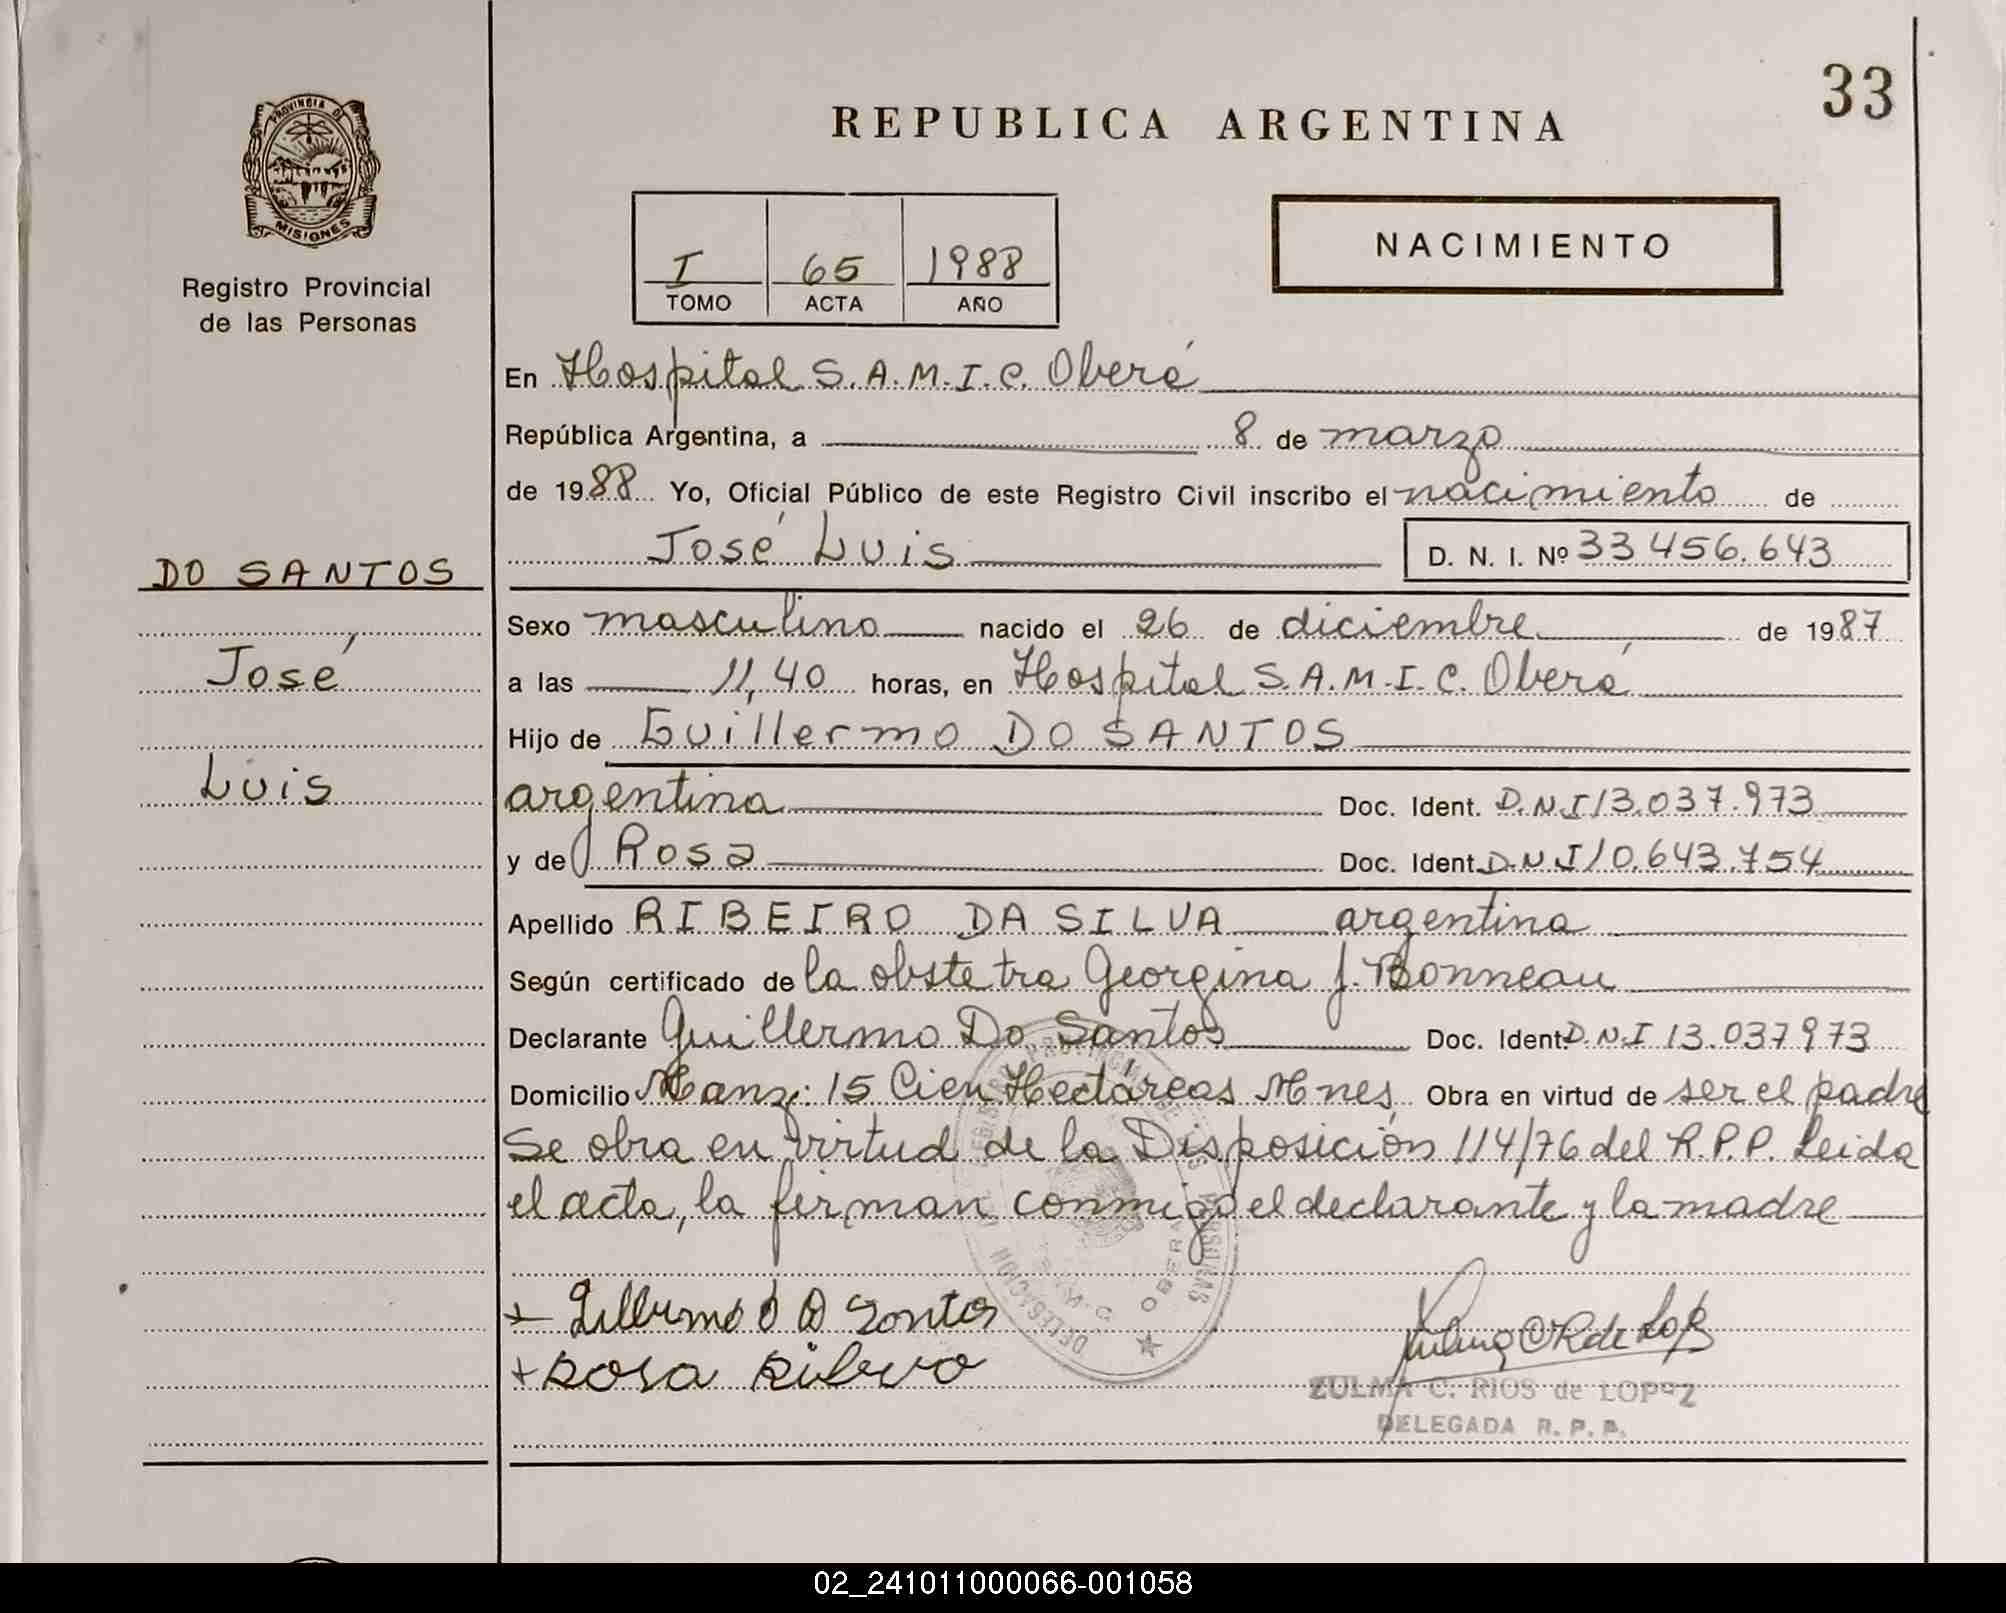 33
REPUBLICA ARGENTINA
PROVINCIA DE
MISIONES
Registro Provincial
de las Personas
NACIMIENTO
I 65 1988
TOMO ACTA AÑO
En Hospital S.A.M.I.C. Oberá
República Argentina, a 8 de marzo
de 1988 Yo, Oficial Público de este Registro Civil inscribo el nacimiento de
José Luis D. N. I. Nº 33456.643
DO SANTOS
José
Luis
Sexo masculino nacido el 26 de diciembre de 1987
a las 11,40 horas, en Hospital S.A.M.I.C. Oberá
Hijo de Guillermo DO SANTOS
argentina Doc. Ident. D.N.I 13.037.973
y de Rosa Doc. Ident. D.N.I 10.643.754
Apellido RIBEIRO DA SILVA argentina
Según certificado de la obstetra Georgina J. Bonneau
Declarante Guillermo Do Santos Doc. Ident. D.N.I 13.037973
Domicilio Manz: 15 Cien Hectáreas Mnes Obra en virtud de ser el padre
Se obra en virtud de la Disposición 114/76 del R.P.P. Leida
el acta, la firman conmigo el declarante y la madre
DELEGACION OBERA
Rosa Ribero
ZULMA C. RIOS de LOPEZ
DELEGADA R. P. P.
02_241011000066-001058